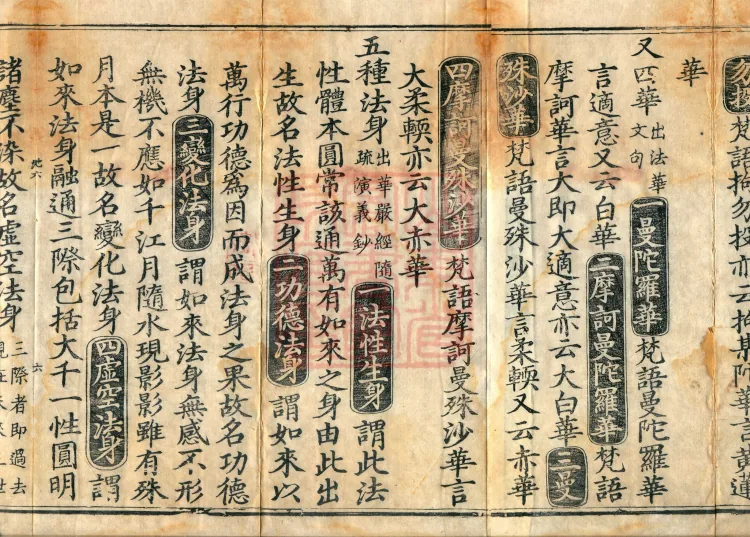 勿投梵語拘勿投亦云拘陀華言黃蓮
華
又四華出法華文句一曼陀羅華梵語曼陀羅華
言適意又云白華二摩訶曼陀羅華梵語
摩訶華言大即大適意亦云大白華三曼
殊沙華梵語曼殊沙華言柔輭又云赤華
四摩訶曼殊沙華梵語摩訶曼殊沙華言
大柔輭亦云大赤華
五種法身出華嚴經隨疏演義鈔一法性生身謂此法
性體本圓常該通萬有如來之身由此出
生故名法性生身二功德法身謂如來以
萬行功德爲因而成法身之果故名功德
法身三變化法身謂如來法身無感不形
無機不應如千江月隨水現影影雖有殊
月本是一故名變化法身四虛空法身謂
如來法身融通三際包括大千一性圓明
六
諸塵不染故名虛空法身三際者即過去現在未來三世